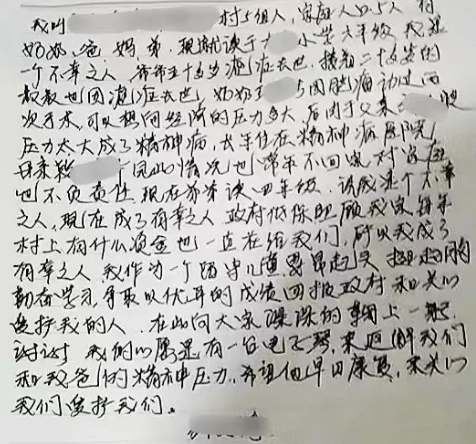 我叫 村5组人，家庭人口5人 有
奶奶、爸 妈、弟，现就读于 小学六年级 我是
一个不幸之人 爷爷五十多岁 癌症去世，接着二十多岁的
叔叔也因癌症去世，奶奶 因肺癌动过两
次手术，可以想向经济的压力多大，后间于父亲
压力太大成了精神病，长年住在精神病医院，
母亲 因此情况也常年不回家，对家庭
也不负责任，现在弟弟读四年级，该成是个不幸
之人，现在成了有幸之人 政府低保照顾我家，每年
村上有什么资金也一直在给我们，所以我成了
有幸之人 我作为一个留守儿童要昂起头 挺起胸
勤奋学习，争取以优异的成绩回报政村和关心
爱护我的人，在此向大家深深的鞠上一躬
谢谢 我们心愿是有一台电子琴，来迎解我们
和我爸 的精神压力，希望他早日康复，来关心
我们爱护我们。